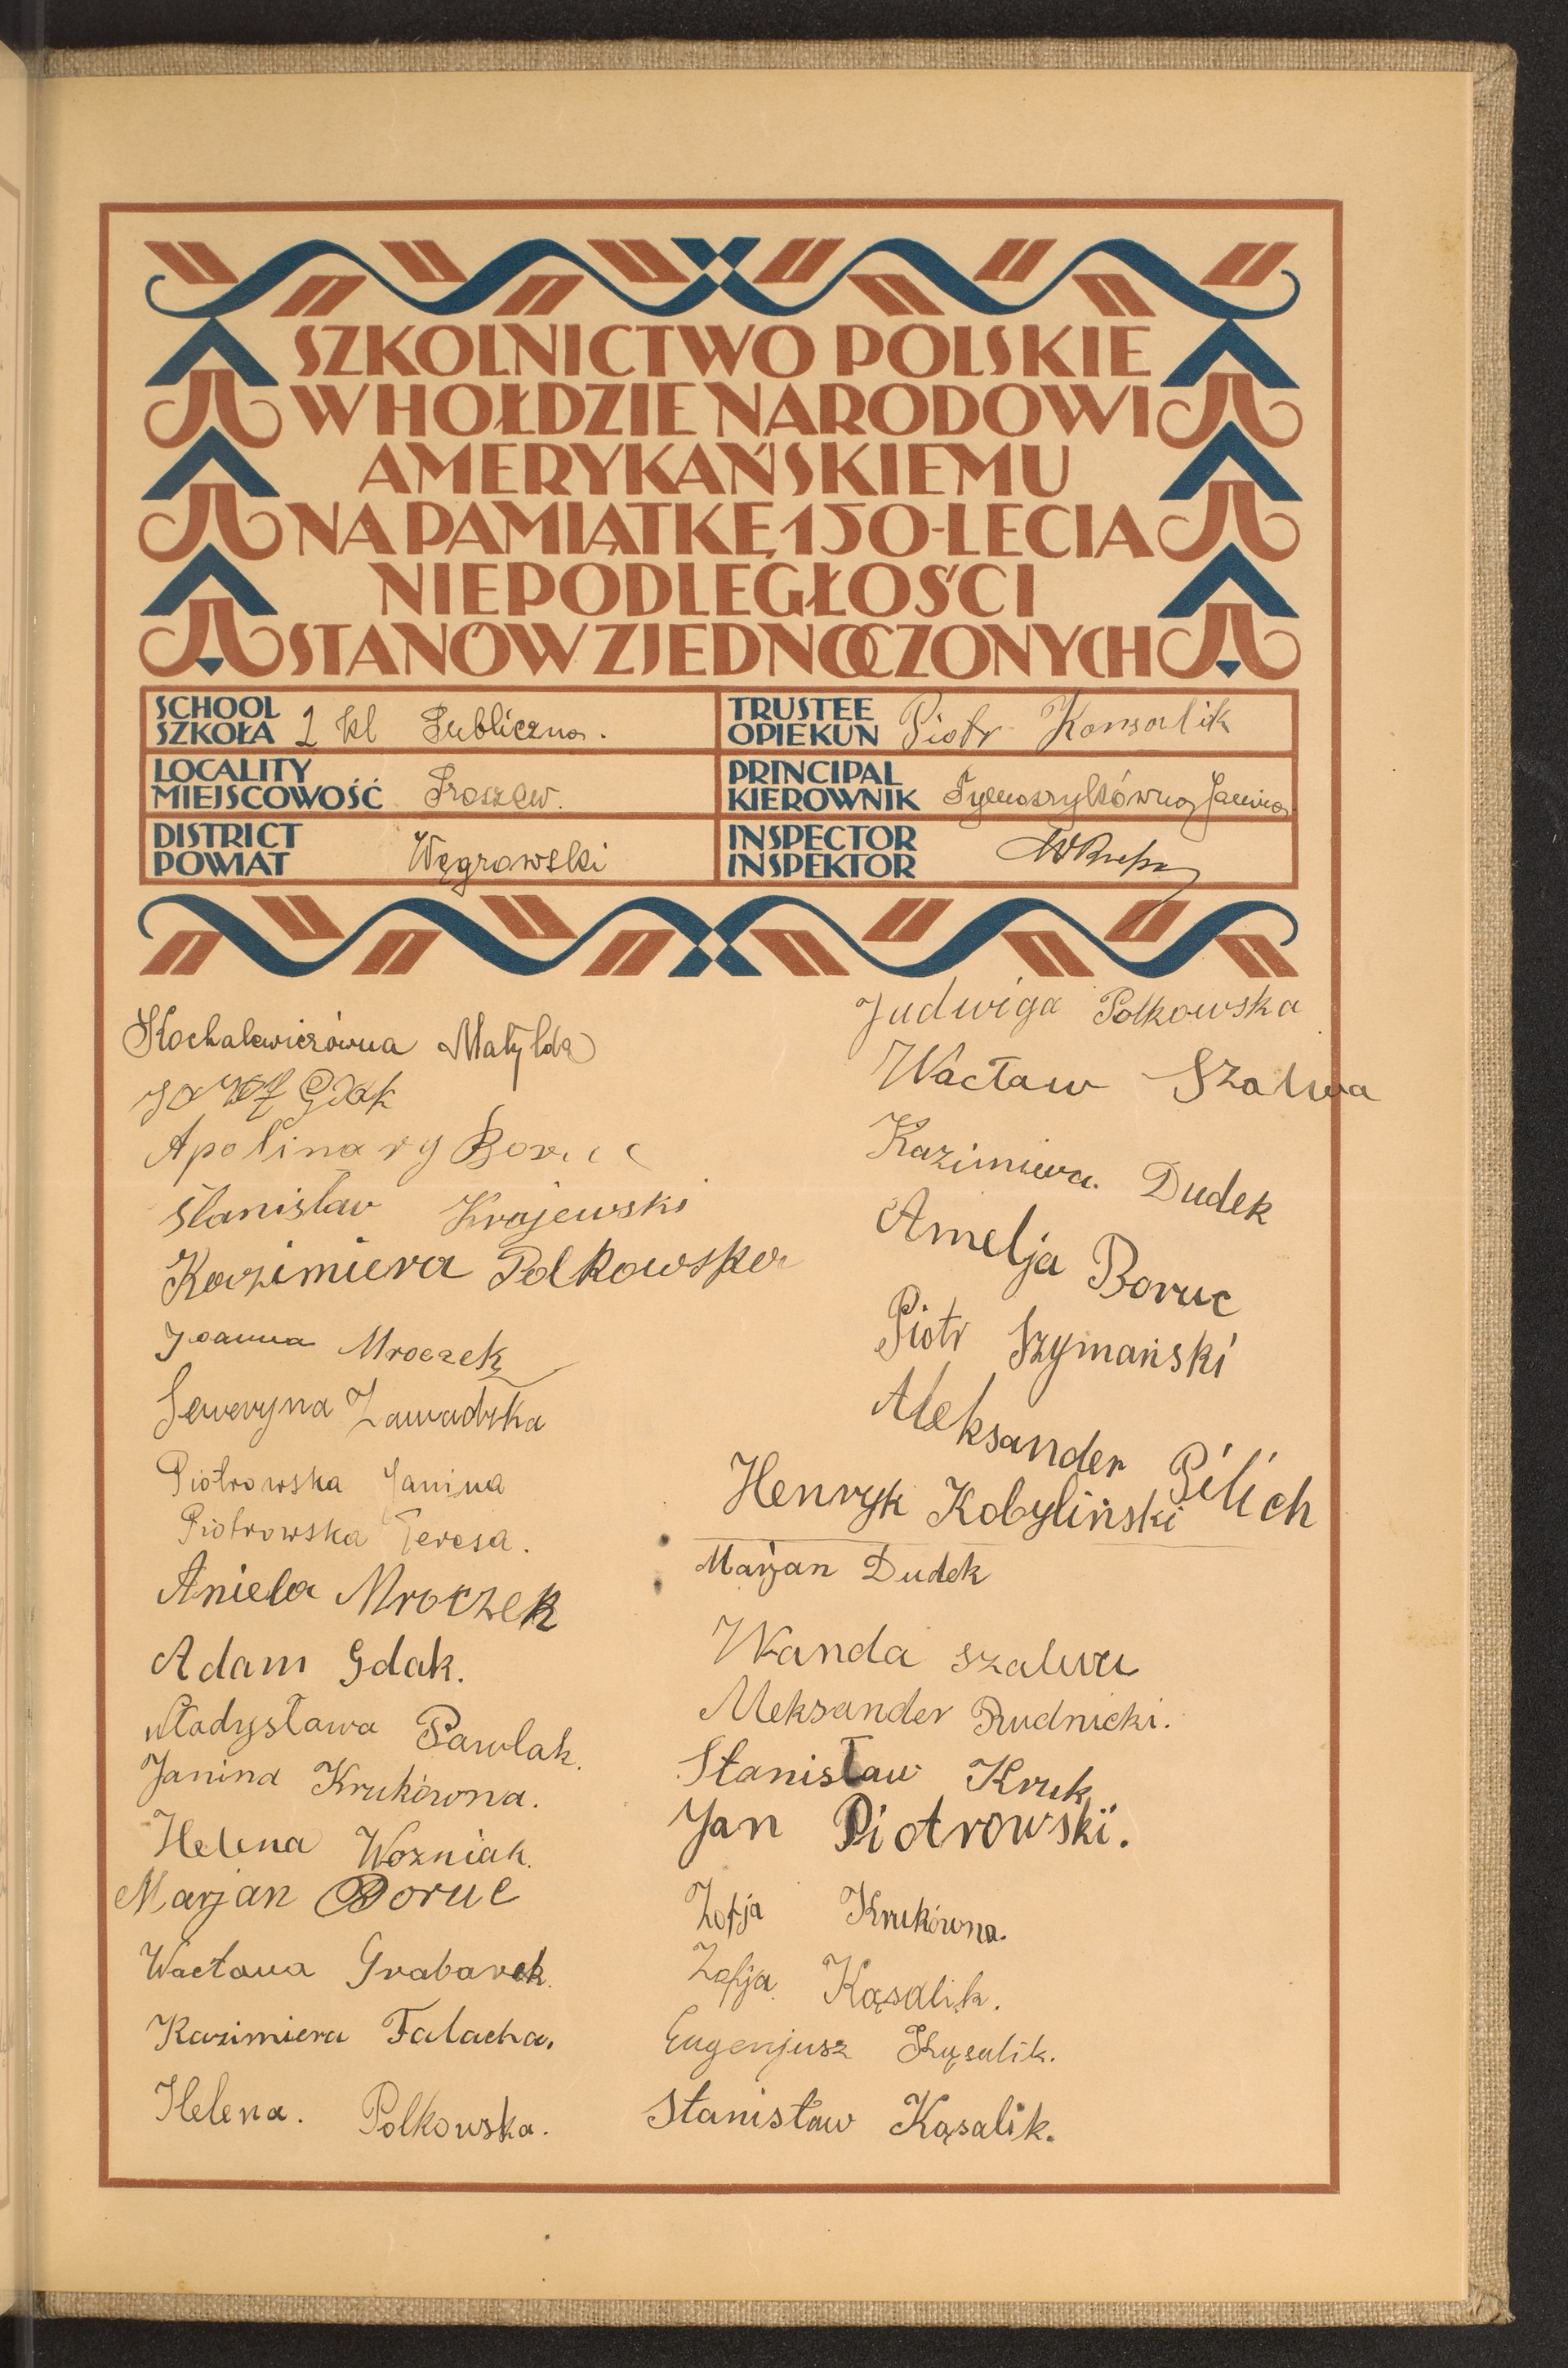 SZKOLNICTWO POLSKIE
W HOŁDZIE NARODOWI
AMERYKAŃSKIEMU
NA PAMIĄTKĘ 150-LECIA
NIEPODLEGŁOŚCI
STANÓW ZJEDNOCZONYCH
SCHOOL
SZKOŁA 2 kl Publiczna.
LOCALITY
MIEJSCOWOŚĆ Proszew.
DISTRICT
POWIAT Węgrowski
TRUSTEE
OPIEKUN Piotr Konsalik
PRINCIPAL
KIEROWNIK Janina
INSPECTOR
INSPEKTOR
Kochalewiczówna Matylda
Józef Gdak
Apolinary Boruc
Stanisław Krajewski
Kazimiera Polkowska
Joanna Mroczek
Seweryna Zawadzka
Piotrowska Janina
Piotrowska Teresa.
Aniela Mroczek
Adam Gdak.
Władysława Pawlak.
Janina Krukówna.
Helena Wozniak.
Marjan Boruc
Wacława Grabarek.
Kazimiera Falacha.
Helena. Polkowska.
Jadwiga Polkowska
Wacław Szalwa
Kazimiera. Dudek
Amelja Boruc
Piotr Szymański
Aleksander Pilich
Henryk Kobyliński
Marjan Dudek
Wanda Szalwa
Aleksander Rudnicki.
Stanisław Kruk
Jan Piotrowski.
Zofja Krukówna.
Zofja Kąsalik.
Eugenjusz Kąsalik.
Stanisław Kąsalik.